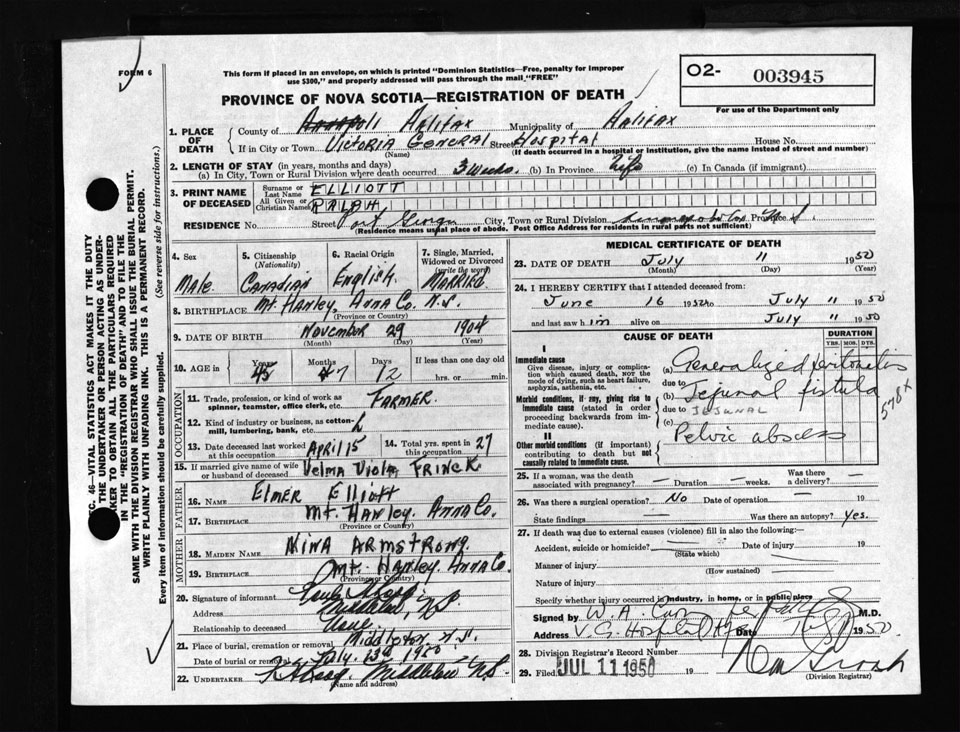 FORM 6
This form if placed in an envelope, on which is printed "Dominion Statistics—Free, penalty for improper
use $300," and properly addressed will pass through the mail "FREE"
PROVINCE OF NOVA SCOTIA—REGISTRATION OF DEATH
O2- 003945
For use of the Department only
1. PLACE OF DEATH
County of Halifax Municipality of Halifax
If in City or Town Victoria General Street Hospital House No.
(Name) (If death occurred in a hospital or institution, give the name instead of street and number)
2. LENGTH OF STAY (in years, months and days)
(a) In City, Town or Rural Division where death occurred 3 Weeks. (b) In Province Life (c) In Canada (if immigrant)
3. PRINT NAME OF DECEASED
Surname or Last Name ELLIOTT
All Given or Christian Names RALPH
RESIDENCE No. Street Port George City, Town or Rural Division Province N.S.
(Residence means usual place of abode. Post Office Address for residents in rural parts not sufficient)
4. Sex Male
5. Citizenship (Nationality) Canadian
6. Racial Origin English
7. Single, Married, Widowed or Divorced (write the word) Married
8. BIRTHPLACE Mt. Hanley, Anna Co. N.S.
(Province or Country)
9. DATE OF BIRTH November 29 1904
(Month) (Day) (Year)
10. AGE in Years 45 Months 7 Days 12 If less than one day old
hrs. or min.
OCCUPATION
11. Trade, profession, or kind of work as spinner, teamster, office clerk, etc. FARMER.
12. Kind of industry or business, as cotton-mill, lumbering, bank, etc.
13. Date deceased last worked at this occupation April 15
14. Total yrs. spent in this occupation 27
15. If married give name of wife or husband of deceased Velma Viola FRINCK
FATHER
16. Name Elmer Elliott
17. BIRTHPLACE Mt. Hanley. Anna Co.
(Province or Country)
MOTHER
18. MAIDEN NAME NINA ARMSTRONG.
19. BIRTHPLACE Mt. Hanley. Anna Co.
(Province or Country)
20. Signature of informant
Address Middleton, N.S.
Relationship to deceased None
21. Place of burial, cremation or removal Middleton N.S.
Date of burial or removal July. 13th 1950
22. UNDERTAKER Middleton N.S.
(Name and address)
MEDICAL CERTIFICATE OF DEATH
23. DATE OF DEATH July 11 1950
(Month) (Day) (Year)
24. I HEREBY CERTIFY that I attended deceased from:
June 16 1950 to July 11 1950
and last saw him alive on July 11 1950
CAUSE OF DEATH
DURATION
YRS. MOS. DYS.
I
Immediate cause
Give disease, injury or complication which caused death, NOT the mode of dying, such as heart failure, asphyxia, asthenia, etc.
(a) Generalized peritonitis
due to
Morbid conditions, if any, giving rise to immediate cause (stated in order proceeding backwards from immediate cause).
(b) Jejunal fistula
due to JEJUNAL
578x
(c)
II
Other morbid conditions (if important) contributing to death but not causally related to immediate cause.
Pelvic abscess
25. If a woman, was the death associated with pregnancy? — Duration — weeks. Was there a delivery? —
26. Was there a surgical operation? No Date of operation — 19
State findings Was there an autopsy? Yes.
27. If death was due to external causes (violence) fill in also the following:
Accident, suicide or homicide? Date of injury 19
(State which)
Manner of injury
(How sustained)
Nature of injury
Specify whether injury occurred in industry, in home, or in public place
Signed by W. A. M.D.
Address V. G. Hospital Hfx Date 1950
28. Division Registrar's Record Number
29. Filed JUL 11 1950
(Division Registrar)
SEC. 46—VITAL STATISTICS ACT MAKES IT THE DUTY
OF THE UNDERTAKER OR PERSON ACTING AS UNDERTAKER
TO OBTAIN ALL THE PARTICULARS REQUIRED
IN THE "REGISTRATION OF DEATH" AND TO FILE THE
SAME WITH THE DIVISION REGISTRAR WHO SHALL ISSUE THE BURIAL PERMIT.
WRITE PLAINLY WITH UNFADING INK. THIS IS A PERMANENT RECORD.
Every item of information should be carefully supplied. (See reverse side for instructions.)